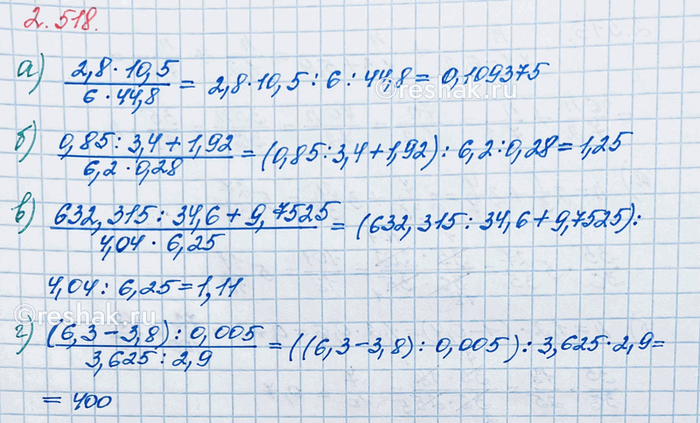 2.518.
а) 2,8 · 10,5 / 6 · 44,8 = 2,8 · 10,5 : 6 : 44,8 = 0,109375
б) 0,85 : 3,4 + 1,92 / 6,2 · 0,28 = (0,85 : 3,4 + 1,92) : 6,2 : 0,28 = 1,25
в) 632,315 : 34,6 + 9,7525 / 4,04 · 6,25 = (632,315 : 34,6 + 9,7525) :
4,04 : 6,25 = 1,11
г) (6,3 − 3,8) : 0,005 / 3,625 : 2,9 = ((6,3 − 3,8) : 0,005) : 3,625 · 2,9 =
= 400
reshak.ru
reshak.ru